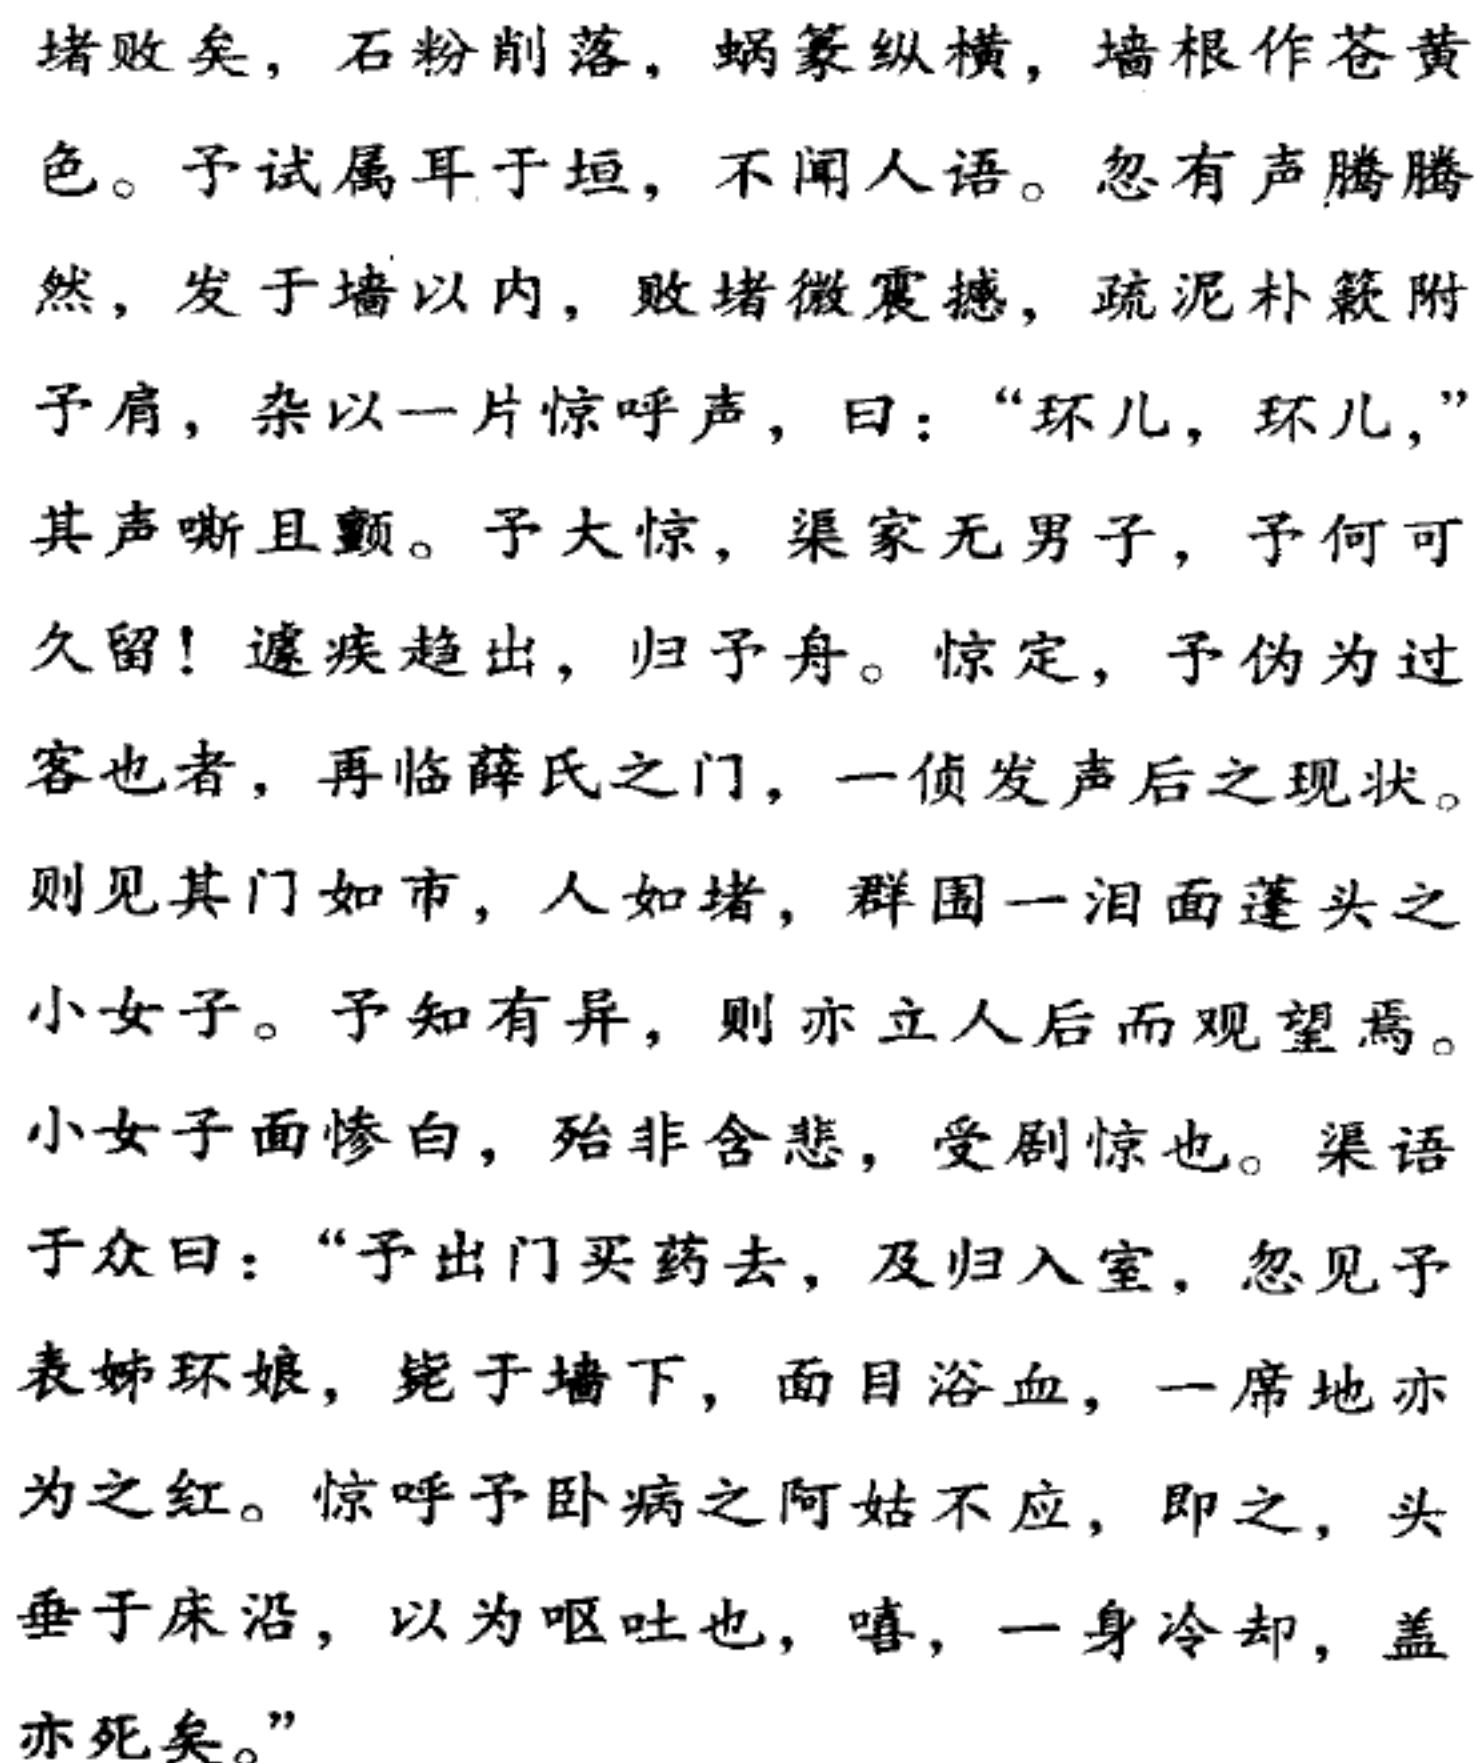 堵败矣，石粉削落，蜗篆纵横，墙根作苍黄
色。予试属耳于垣，不闻人语。忽有声腾腾
然，发于墙以内，败堵微震撼，疏泥朴簌附
予肩，杂以一片惊呼声，曰：“环儿，环儿，”
其声嘶且颤。予大惊，渠家无男子，予何可
久留！遽疾趋出，归予舟。惊定，予伪为过
客也者，再临薛氏之门，一侦发声后之现状。
则见其门如市，人如堵，群围一泪面蓬头之
小女子。予知有异，则亦立人后而观望焉。
小女子面惨白，殆非含悲，受剧惊也。渠语
于众曰：“予出门买药去，及归入室，忽见予
表姊环娘，毙于墙下，面目浴血，一席地亦
为之红。惊呼予卧病之阿姑不应，即之，头
垂于床沿，以为呕吐也，嘻，一身冷却，盖
亦死矣。”